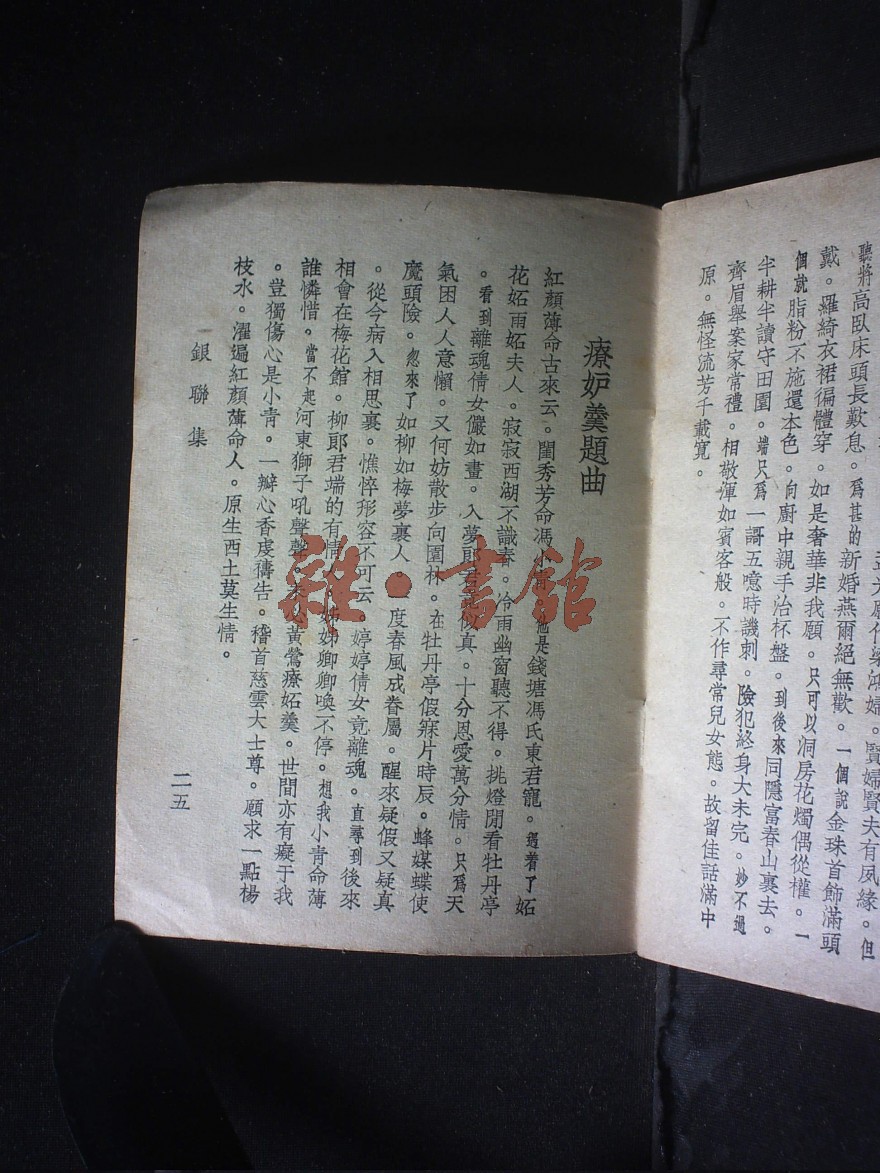 聽將高臥床頭長歎息。爲甚的新婚燕爾絕無歡。一個說金珠首飾滿頭
戴。羅綺衣裙徧體穿。如是奢華非我願。只可以洞房花燭偶從權。一
個就脂粉不施還本色。向廚中親手治杯盤。到後來同隱富春山裏去。
半耕半讀守田園。端只爲一哥五噫時譏刺。險犯終身大未完。妙不過
齊眉舉案家常禮。相敬渾如賓客般。不作尋常兒女態。故留佳話滿中
原。無怪流芳千載寬。
療妒羹題曲
紅顏薄命古來云。閨秀芳命馮小青。他是錢塘馮氏東君寵。遇着了妬
花妬雨妬夫人。寂寂西湖不識春。伶雨幽窗聽不得。挑燈閒看牡丹亭
。看到離魂倩女儼如畫。入夢郎君是似真。十分恩愛萬分情。只爲天
氣困人人意懶。又何妨散步向園林。在牡丹亭假寐片時辰。蜂媒蝶使
魔頭險。忽來了如柳如梅夢裏人。一度春風成眷屬。醒來疑假又疑真
。從今病入相思裏。憔悴形容不可云。婷婷倩女竟離魂。直尋到後來
相會在梅花館。柳郎君端的有情 姊姊卿卿喚不停。想我小青命薄
誰憐惜。當不起河東獅子吼聲聲。 黃鶯療妬羹。世間亦有癡于我
。豈獨傷心是小青。一瓣心香虔禱告。稽首慈雲大士尊。願求一點楊
枝水。濯遍紅顏薄命人。原生西土莫生情。
銀聯集
二五
雜·書館